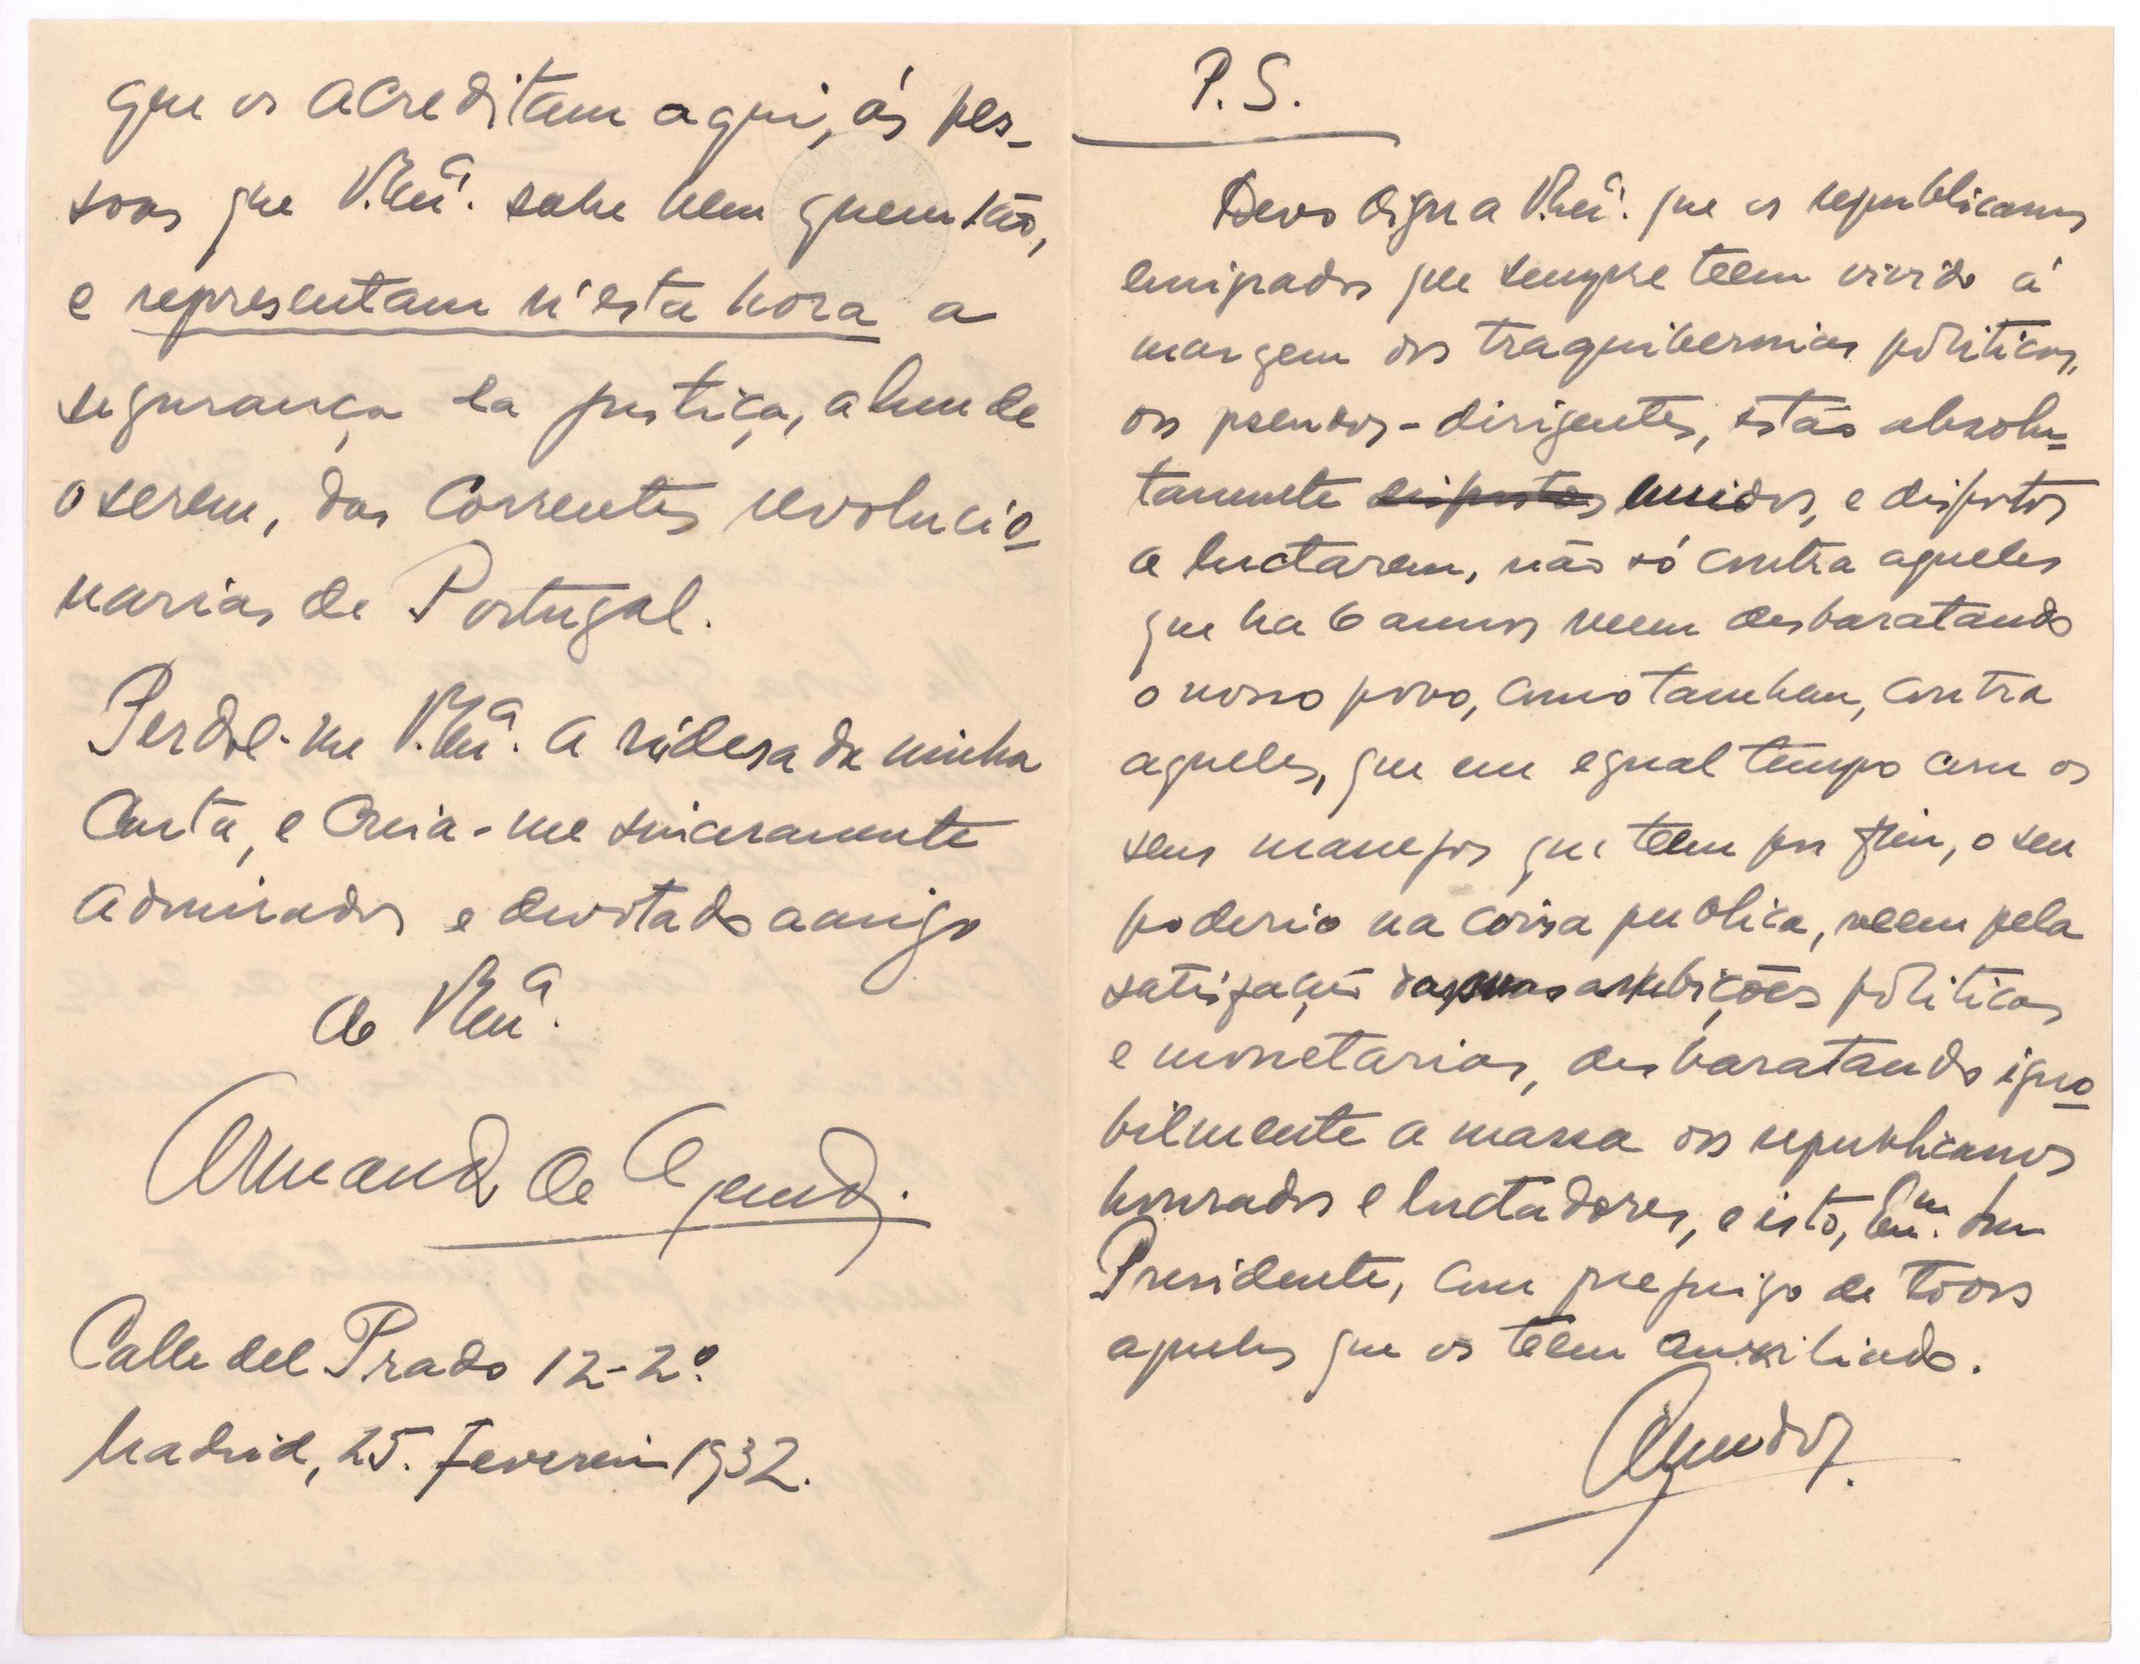 que os acreditam aqui, ás pes-
soas que V. Exª. sabe bem quem são,
e representam n'esta hora a
segurança e a justiça, alem de
o serem, das correntes revolucio-
narias de Portugal.
Perdoe-me V. Exª. a rudesa da minha
Carta, e Creia-me sinceramente
admirador e devotado amigo
de V. Exª.
Armando de
Calle del Prado 12-2º
Madrid, 25. Fevereiro 1932.
P. S.
Devo dizer a V. Exª. que os republicanos
emigrados que sempre teem vivido á
margem das traquibernias politicas,
os pseudos-dirigentes, estão absolu-
tamente dispostos unidos, e dispostos
a luctarem, não só contra aqueles
que ha 6 annos veem desbaratando
o nosso povo, como tambem, contra
aqueles, que em egual tempo com os
seus manejos que teem por fim, o seu
poderio na coisa publica, veem pela
satisfação das suas ambições politicas
e monetarias, desbaratando igno-
bilmente a massa dos republicanos
honrados e luctadores, e isto, Exmº. Snr
Presidente, com prejuizo de todos
aqueles que os teem auxiliado.